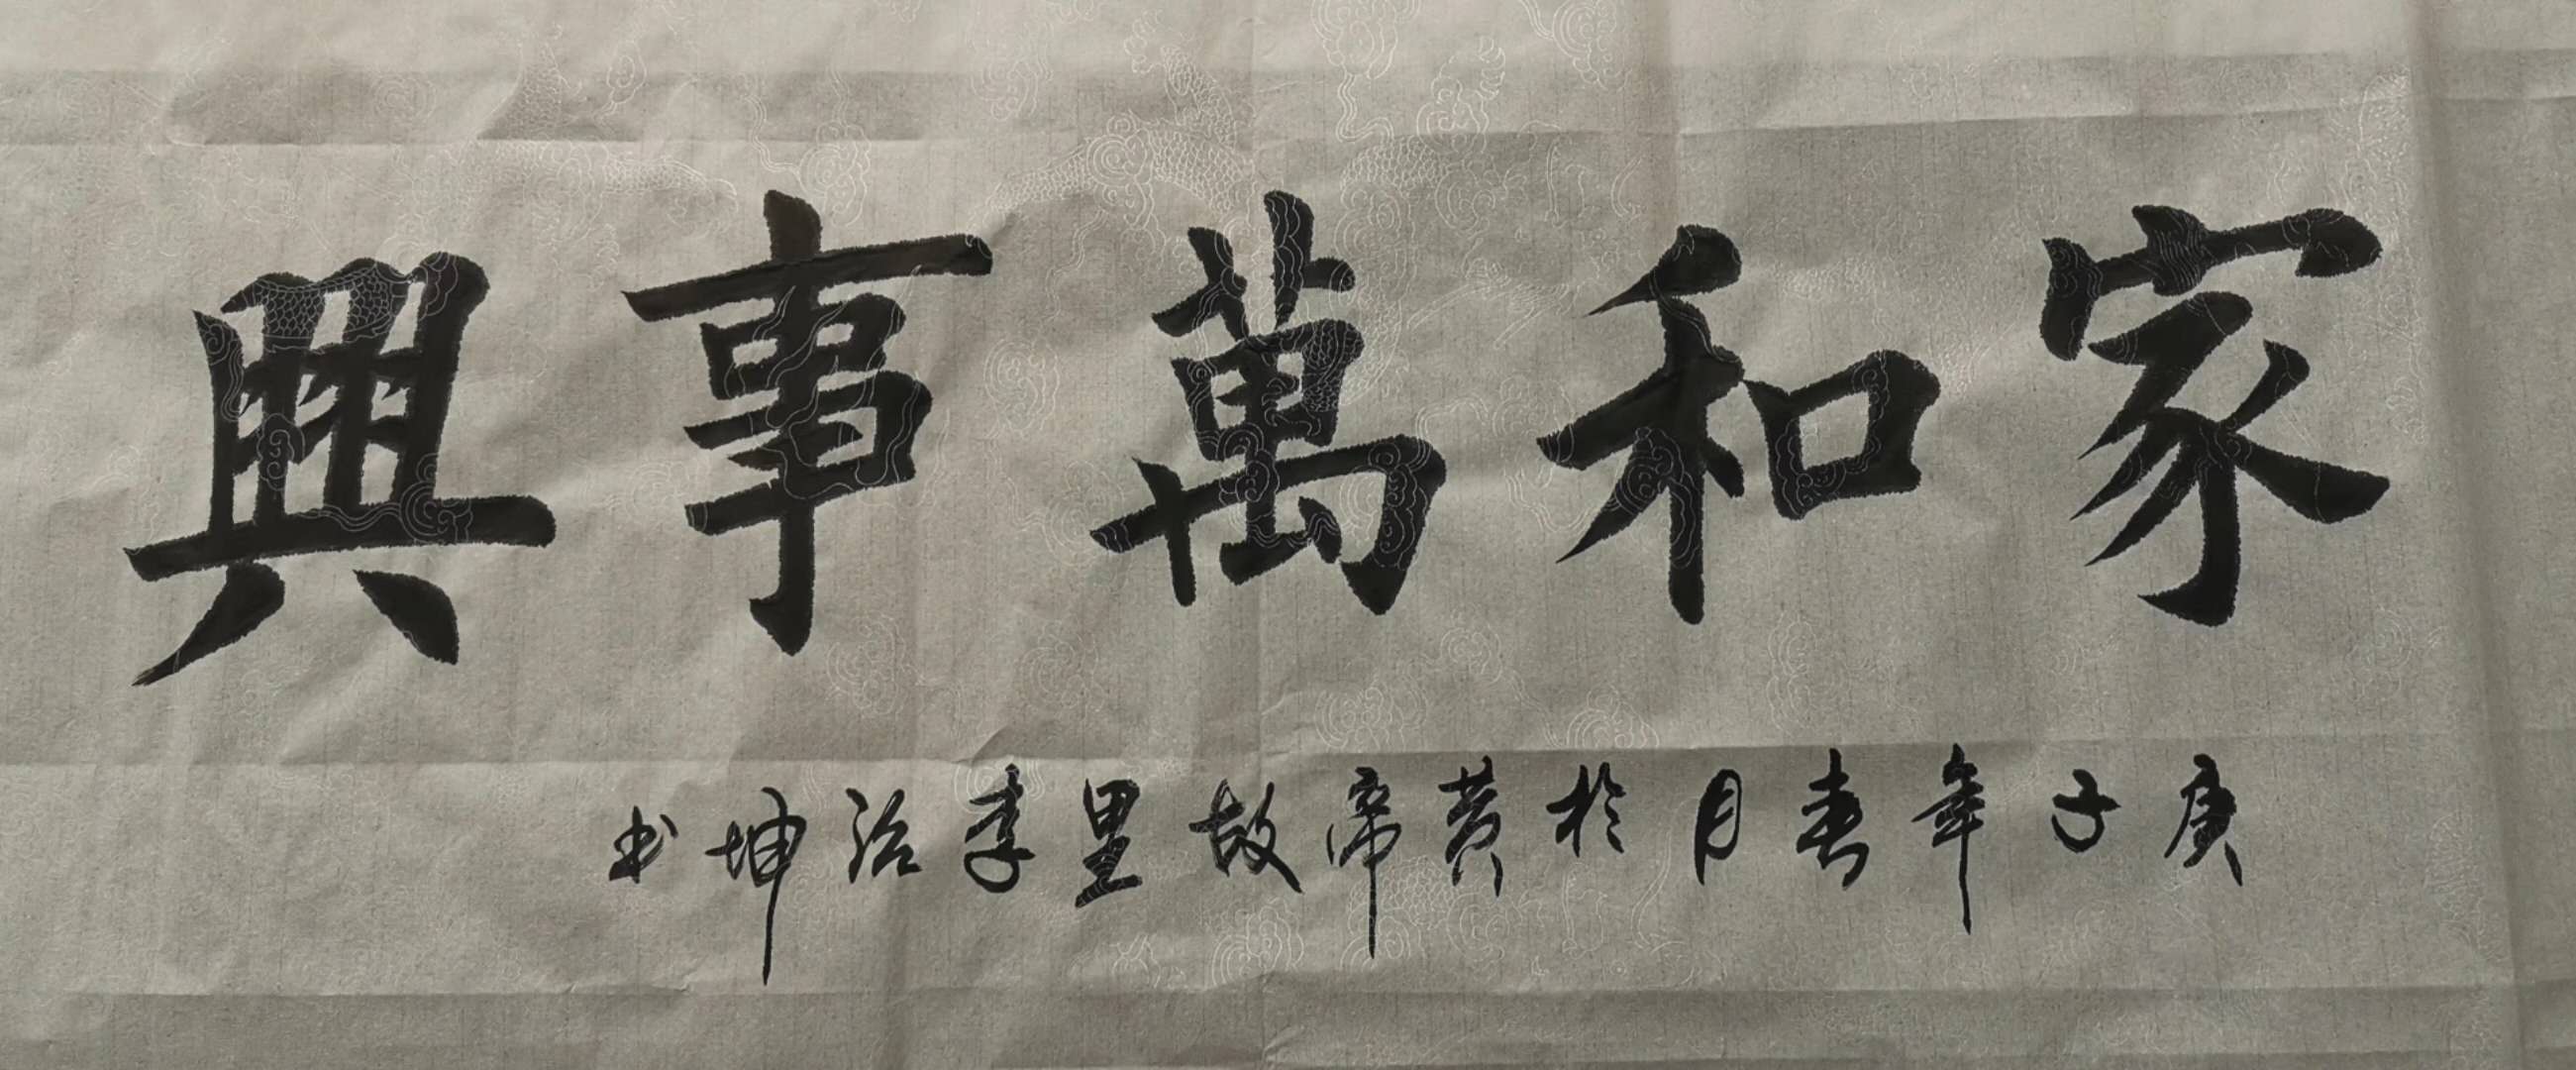 家和萬事興
庚子年春月於黄帝故里李治坤书